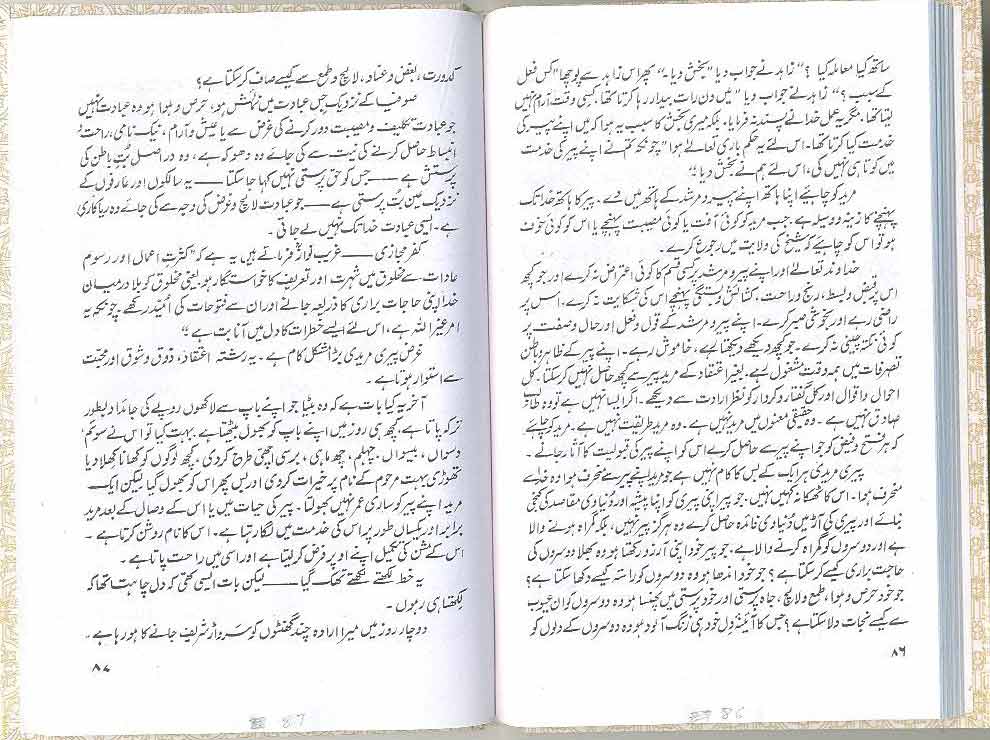 ساتھ کیا معاملہ کیا ؟” زاہد نے جواب دیا “بخش دیا۔” پھر اس زاہد سے پوچھا “کس فعل
کے سبب ؟” زاہد نے جواب دیا “میں دن رات بیدار رہا کرتا تھا، کسی وقت آرام نہیں
لیتا تھا، مگر یہ عمل خدا نے پسند نہ فرمایا، بلکہ میری بخشش کا سبب یہ ہوا کہ میں اپنے پیر کی
خدمت کیا کرتا تھا۔ اس لئے یہ حکم باری تعالےٰ ہوا “چونکہ تم نے اپنے پیر کی خدمت
میں کوتاہی نہیں کی، اس لئے ہم نے بخش دیا۔”
مرید کو چاہیئے اپنا ہاتھ اپنے پیر و مرشد کے ہاتھ میں دے، پیر کا ہاتھ خدا تک
پہنچنے کا زینہ و وسیلہ ہے۔ جب مرید کو کوئی آفت یا کوئی مصیبت پہنچے یا اس کو کوئی خوف
ہو تو اس کو چاہیے کہ شیخ کی ولایت میں رجوع کرے۔
خداوند تعالےٰ اور اپنے پیر و مرشد پر کسی قسم کا کوئی اعتراض نہ کرے اور جو کچھ
اس پر قبض و بسط، رنج و راحت، کشائش و بستگی پہنچے اس کی شکایت نہ کرے۔ اس پر
راضی رہے اور بخوشی صبر کرے۔ اپنے پیر و مرشد کے قول و فعل اور حال و صفت پر
کوئی نکتہ چینی نہ کرے۔ جو کچھ دیکھے دیکھتا رہے، خاموش رہے۔ اپنے پیر کے ظاہر و باطن
تصرفات میں ہمہ وقت مشغول رہے۔ بغیر اعتقاد کے مرید پیر سے کچھ حاصل نہیں کر سکتا۔ کل
احوال و اقوال اور کل گفتار و کردار کو نظر ارادت سے دیکھے۔ اگر ایسا نہیں ہے تو وہ طالب
صادق نہیں ہے۔ وہ حقیقی معنوں میں مرید نہیں ہے۔ وہ مرید طریقت نہیں ہے۔ مرید کو چاہیے
کہ ہر فتح و فیض کو جو اپنے پیر سے حاصل کرے اس کو اپنے پیر کی قبولیت کا آثار جانے۔
پیری مریدی ہر ایک کے بس کا کام نہیں ہے جو مرید اپنے پیر سے منحرف ہوا وہ خدا سے
منحرف ہوا۔ اس کا ٹھکانہ نہیں نہیں۔ جو پیر اپنی پیری کو اپنا پیشہ اور دُنیاوی مقاصد کی کنجی
بنائے اور پیری کی آڑ میں دُنیاوی فائدہ حاصل کرے وہ ہرگز پیر نہیں، بلکہ گمراہ ہونے والا
ہے اور دوسروں کو گمراہ کرنے والا ہے، جو پیر خود اپنی آرزو رکھتا ہو وہ بھلا دوسروں کی
حاجت براری کیسے کر سکتا ہے؟ جو خود اندھا ہو وہ دوسروں کو راستہ کیسے دکھا سکتا ہے؟
جو خود حرص و ہوا، طمع و لالچ، جاہ پرستی اور خود پرستی میں پھنسا ہو وہ دوسروں کو ان عیوب
سے کیسے نجات دلا سکتا ہے؟ جس کا آئینۂ دل خود ہی زنگ آلود ہو وہ دوسروں کے دلوں کو
۸۶
86
کدورت، بغض و عناد، لالچ و طمع سے کیسے صاف کر سکتا ہے؟
صوفیا کے نزدیک جس عبادت میں خواہش ہو، حرص و ہوا ہو وہ عبادت نہیں
جو عبادت تکلیف و مصیبت دور کرنے کی غرض سے یا عیش و آرام، نیک نامی، راحت و
انبساط حاصل کرنے کی نیت سے کی جائے وہ دھوکہ ہے، وہ دراصل بُت باطن کی
پرستش ہے — جس کو حق پرستی نہیں کہا جا سکتا — یہ سالکوں اور عارفوں کے
نزدیک عین بُت پرستی ہے — جو عبادت لالچ و غرض کی وجہ سے کی جائے وہ ریاکاری
ہے۔ ایسی عبادت خدا تک نہیں لے جاتی۔
کفر مجازی — غریب نوازؒ فرماتے ہیں یہ ہے کہ “کثرتِ اعمال اور رسوم
عادات سے مخلوق میں شہرت اور تعریف کا خواستگار ہو۔ یعنی مخلوق کو بلا درمیان
خدا اپنی حاجات براری کا ذریعہ جانے اور ان سے فتوحات کی اُمید رکھے۔ چونکہ یہ
امر غیر اللہ ہے، اس لئے ایسے خطرات کا دل میں آنا بت ہے۔”
غرض پیری مریدی بڑا مشکل کام ہے۔ یہ رشتہ اعتقاد، ذوق و شوق اور محبت
سے استوار ہوتا ہے۔
آخر یہ کیا بات ہے کہ وہ بیٹا جو اپنے باپ سے لاکھوں روپے کی جائداد بطور
ترکہ پاتا ہے، کچھ ہی روز میں اپنے باپ کو بھول بیٹھتا ہے۔ بہت کیا تو اس نے سوئم،
دسواں، بیسواں، چہلم، چھ ماہی، برسی اچھی طرح کر دی، کچھ لوگوں کو کھانا کھلا دیا
تھوڑی بہت مرحوم کے نام پر خیرات کر دی اور بس پھر اس کو بھول گیا لیکن ایک
مرید اپنے پیر کو ساری عمر نہیں بھولتا۔ پیر کی حیات میں یا اس کے وصال کے بعد مرید
برابر اور یکساں طور پر اس کی خدمت میں لگا رہتا ہے۔ اس کا نام روشن کرتا ہے۔
اس کے مشن کی تکمیل اپنے اوپر فرض کر لیتا ہے اور اسی میں راحت پاتا ہے۔
یہ خط لکھتے لکھتے تھک گیا — لیکن بات ایسی تھی کہ دل چاہتا تھا کہ
لکھتا ہی رہوں۔
دو چار روز میں میرا ارادہ چند گھنٹوں کو سرواڑ شریف جانے کا ہو رہا ہے۔
۸۷
87